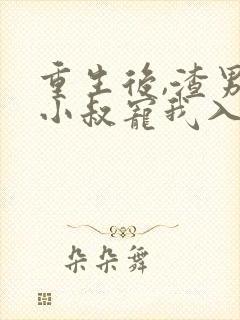 重生後,渣男
小叔寵我入
朵朵舞